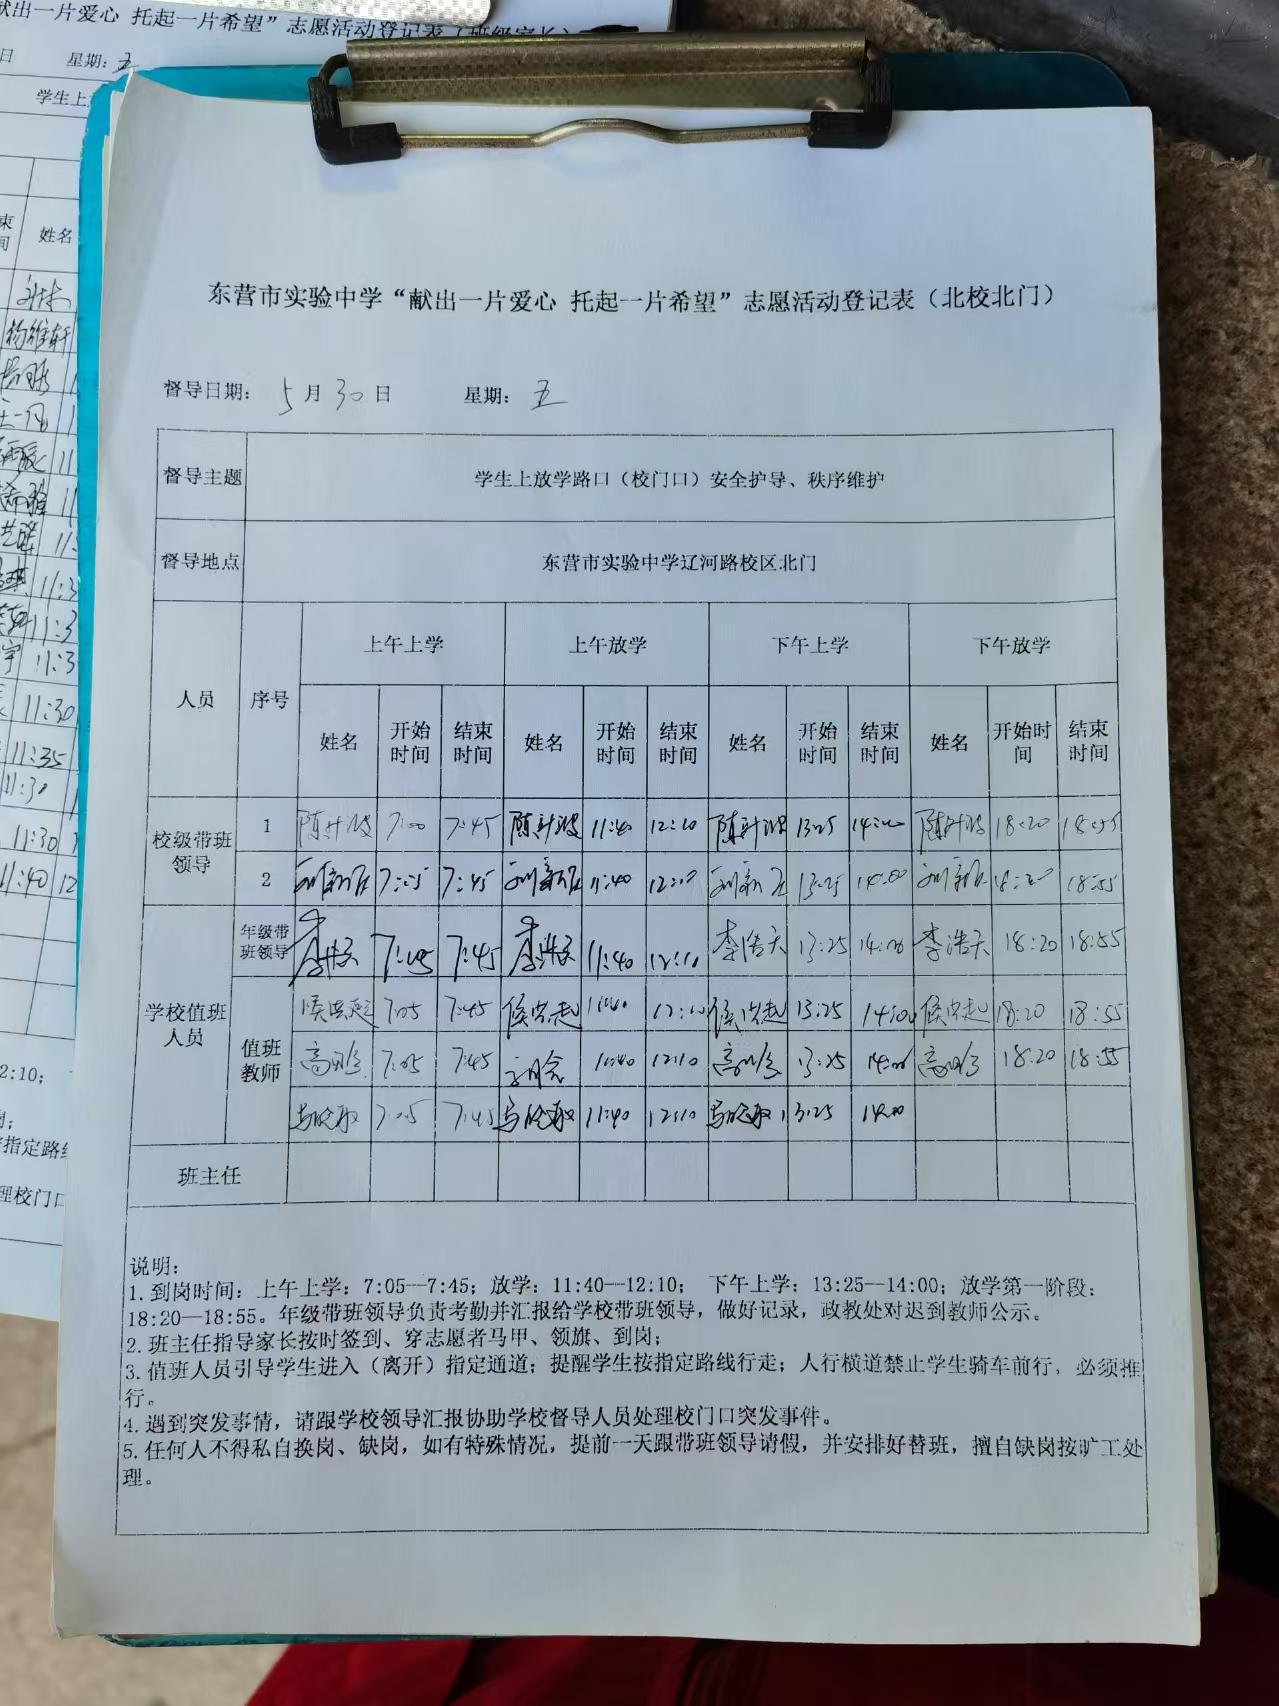 献出一片爱心 托起一片希望”志愿活动登记表（班级家长）
日 星期：五
学生上
束
间 姓名
杨维轩
11:3
11:3
11:3
11:30
11:35
11:30
11:30
11:40 12
2:10；
指定路线
理校门口
东营市实验中学“献出一片爱心 托起一片希望”志愿活动登记表（北校北门）
督导日期： 5月30日 星期：五
督导主题 学生上放学路口（校门口）安全护导、秩序维护
督导地点 东营市实验中学辽河路校区北门
人员 序号 上午上学 上午放学 下午上学 下午放学
姓名 开始时间 结束时间 姓名 开始时间 结束时间 姓名 开始时间 结束时间 姓名 开始时间 结束时间
校级带班领导 1 7:00 7:45 11:40 12:10 13:25 14:00 18:20 18:55
2 7:05 7:45 11:40 12:10 13:25 14:00 18:20 18:55
学校值班人员 年级带班领导 7:05 7:45 11:40 12:10 李浩天 13:25 14:00 李浩天 18:20 18:55
值班教师 7:05 7:45 11:40 12:10 13:25 14:00 18:20 18:55
7:05 7:45 11:40 12:10 13:25 14:00 18:20 18:55
7:05 7:45 11:40 12:10 13:25 14:00
班主任
说明：
1.到岗时间：上午上学：7:05—7:45；放学：11:40—12:10； 下午上学：13:25—14:00；放学第一阶段：
18:20—18:55。年级带班领导负责考勤并汇报给学校带班领导，做好记录，政教处对迟到教师公示。
2.班主任指导家长按时签到、穿志愿者马甲、领旗、到岗；
3.值班人员引导学生进入（离开）指定通道；提醒学生按指定路线行走；人行横道禁止学生骑车前行，必须推
行。
4.遇到突发事情，请跟学校领导汇报协助学校督导人员处理校门口突发事件。
5.任何人不得私自换岗、缺岗，如有特殊情况，提前一天跟带班领导请假，并安排好替班，擅自缺岗按旷工处
理。